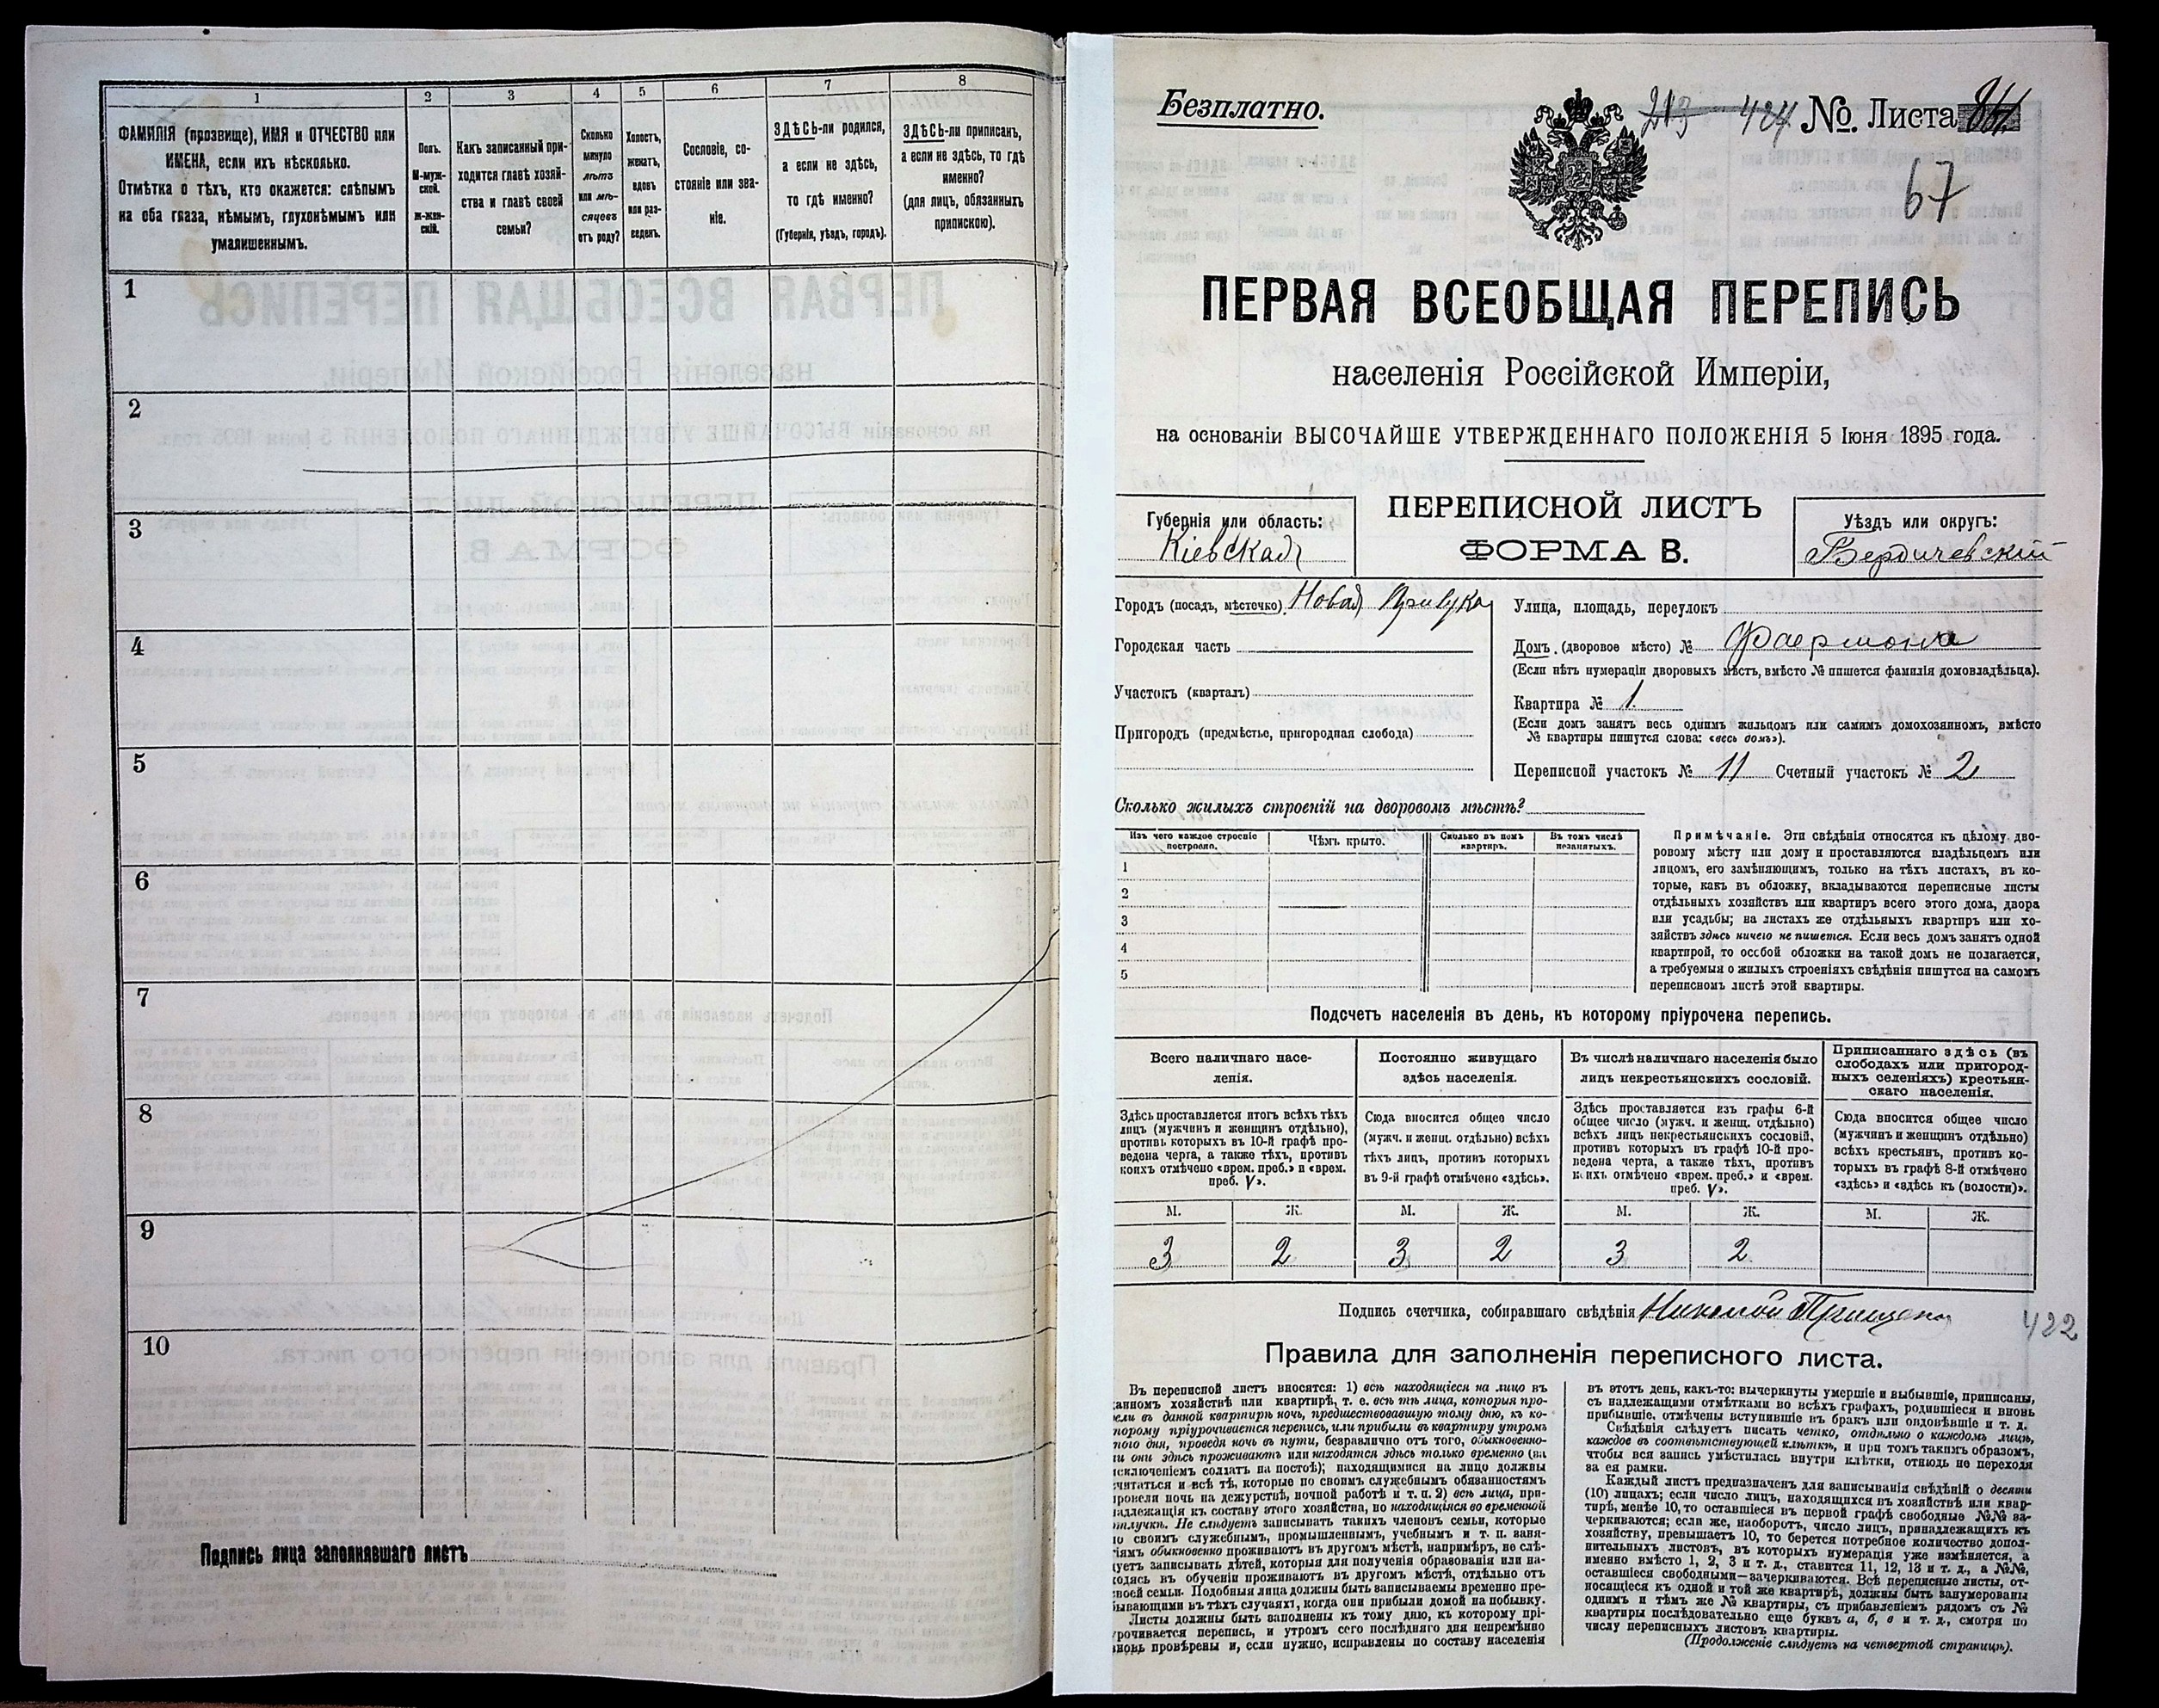 1
2
3
4
5
6
7
8
ФАМИЛІЯ (прозвище), ИМЯ и ОТЧЕСТВО или
ИМЕНА, если ихъ нѣсколько.
Отмѣтка о тѣхъ, кто окажется: слѣпымъ
на оба глаза, нѣмымъ, глухонѣмымъ или
умалишеннымъ.
Полъ.
М-муж-
ской.
ж-жен-
скій.
Какъ записанный при-
ходится главѣ хозяй-
ства и главѣ своей
семьи?
Сколько
минуло
лѣтъ
или мѣ-
сяцевъ
отъ роду?
Холостъ,
женатъ,
вдовъ
или раз-
веденъ.
Сословіе, со-
стояніе или зва-
ніе.
ЗДѢСЬ-ли родился,
а если не здѣсь,
то гдѣ именно?
(Губернія, уѣздъ, городъ).
ЗДѢСЬ-ли приписанъ,
а если не здѣсь, то гдѣ
именно?
(для лицъ, обязанныхъ
припискою).
1
2
3
4
5
6
7
8
9
10
Подпись лица заполнявшаго листъ
Безплатно.
213 424 № Листа
67
ПЕРВАЯ ВСЕОБЩАЯ ПЕРЕПИСЬ
населенія Россійской Имперіи,
на основаніи ВЫСОЧАЙШЕ УТВЕРЖДЕННАГО ПОЛОЖЕНІЯ 5 Іюня 1895 года.
Губернія или область:
Кіевская
ПЕРЕПИСНОЙ ЛИСТЪ
ФОРМА В.
Уѣздъ или округъ:
Бердичевскій
Городъ (посадъ, мѣстечко) Новая Прилука
Городская часть
Участокъ (кварталъ)
Пригородъ (предмѣстье, пригородная слобода)
Улица, площадь, переулокъ
Домъ (дворовое мѣсто) № Фаермана
(Если нѣтъ нумераціи дворовыхъ мѣстъ, вмѣсто № пишется фамилія домовладѣльца).
Квартира № 1
(Если домъ занятъ весь однимъ жильцомъ или самимъ домохозяиномъ, вмѣсто
№ квартиры пишутся слова: «весь домъ»).
Переписной участокъ № 11 Счетный участокъ № 2
Сколько жилыхъ строеній на дворовомъ мѣстѣ?
Изъ чего каждое строеніе
построено.
Чѣмъ крыто.
Сколько въ немъ
квартиръ.
Въ томъ числѣ
незанятыхъ.
1
2
3
4
5
Примѣчаніе. Эти свѣдѣнія относятся къ цѣлому дво-
ровому мѣсту или дому и проставляются владѣльцемъ или
лицомъ, его замѣняющимъ, только на тѣхъ листахъ, въ ко-
торые, какъ въ обложку, вкладываются переписные листы
отдѣльныхъ хозяйствъ или квартиръ всего этого дома, двора
или усадьбы; на листахъ же отдѣльныхъ квартиръ или хо-
зяйствъ здѣсь ничего не пишется. Если весь домъ занятъ одной
квартирой, то особой обложки на такой домъ не полагается,
а требуемыя о жилыхъ строеніяхъ свѣдѣнія пишутся на самомъ
переписномъ листѣ этой квартиры.
Подсчетъ населенія въ день, къ которому пріурочена перепись.
Всего наличнаго насе-
ленія.
Здѣсь проставляется итогъ всѣхъ тѣхъ
лицъ (мужчинъ и женщинъ отдѣльно),
противъ которыхъ въ 10-й графѣ про-
ведена черта, а также тѣхъ, противъ
коихъ отмѣчено «врем. преб.» и «врем.
преб. V».
Постоянно живущаго
здѣсь населенія.
Сюда вносится общее число
(мужч. и женщ. отдѣльно) всѣхъ
тѣхъ лицъ, противъ которыхъ
въ 9-й графѣ отмѣчено «здѣсь».
Въ числѣ наличнаго населенія было
лицъ некрестьянскихъ сословій.
Здѣсь проставляется изъ графы 6-й
общее число (мужч. и женщ. отдѣльно)
всѣхъ лицъ некрестьянскихъ сословій,
противъ которыхъ въ графѣ 10-й про-
ведена черта, а также тѣхъ, противъ
коихъ отмѣчено «врем. преб.» и «врем.
преб. V».
Приписаннаго здѣсь (въ
слободахъ или пригород-
ныхъ селеніяхъ) крестьян-
скаго населенія.
Сюда вносится общее число
(мужчинъ и женщинъ отдѣльно)
всѣхъ крестьянъ, противъ ко-
торыхъ въ графѣ 8-й отмѣчено
«здѣсь» и «здѣсь къ (волости)».
М. Ж. М. Ж. М. Ж. М. Ж.
3 2 3 2 3 2
Подпись счетчика, собиравшаго свѣдѣнія
422
Правила для заполненія переписного листа.
Въ переписной листъ вносятся: 1) всѣ находящіеся на лицо въ
анномъ хозяйствѣ или квартирѣ, т. е. всѣ тѣ лица, которыя про-
ели въ данной квартирѣ ночь, предшествовавшую тому дню, къ ко-
торому пріурочивается перепись, или прибыли въ квартиру утромъ
того дня, проведя ночь въ пути, безразлично отъ того, обыкновенно-
и они здѣсь проживаютъ или находятся здѣсь только временно (за
исключеніемъ солдатъ на постоѣ); находящимися на лицо должны
считаться и всѣ тѣ, которые по своимъ служебнымъ обязанностямъ
провели ночь на дежурствѣ, ночной работѣ и т. п. 2) всѣ лица, при-
надлежащія къ составу этого хозяйства, но находящіяся во временной
отлучкѣ. Не слѣдуетъ записывать такихъ членовъ семьи, которые
по своимъ служебнымъ, промышленнымъ, учебнымъ и т. п. заня-
тіямъ обыкновенно проживаютъ въ другомъ мѣстѣ, напримѣръ, не слѣ-
дуетъ записывать дѣтей, которыя для полученія образованія или на-
ходясь въ обученіи проживаютъ въ другомъ мѣстѣ, отдѣльно отъ
своей семьи. Подобныя лица должны быть записываемы временно пре-
бывающими въ тѣхъ случаяхъ, когда они прибыли домой на побывку.
Листы должны быть заполнены къ тому дню, къ которому прі-
урочивается перепись, и утромъ сего послѣдняго дня непремѣнно
вновь провѣрены и, если нужно, исправлены по составу населенія
въ этотъ день, какъ-то: вычеркнуты умершіе и выбывшіе, приписаны,
съ надлежащими отмѣтками во всѣхъ графахъ, родившіеся и вновь
прибывшіе, отмѣчены вступившіе въ бракъ или овдовѣвшіе и т. д.
Свѣдѣнія слѣдуетъ писать четко, отдѣльно о каждомъ лицѣ,
каждое въ соотвѣтствующей клѣткѣ, и при томъ такимъ образомъ,
чтобы вся запись умѣстилась внутри клѣтки, отнюдь не переходя
за ея рамки.
Каждый листъ предназначенъ для записыванія свѣдѣній о десяти
(10) лицахъ; если число лицъ, находящихся въ хозяйствѣ или квар-
тирѣ, менѣе 10, то оставшіеся въ первой графѣ свободные №№ за-
черкиваются; если же, наоборотъ, число лицъ, принадлежащихъ къ
хозяйству, превышаетъ 10, то берется потребное количество допол-
нительныхъ листовъ, въ которыхъ нумерація уже измѣняется, а
именно вмѣсто 1, 2, 3 и т. д., ставится 11, 12, 13 и т. д., а №№,
оставшіеся свободными—зачеркиваются. Всѣ переписные листы, от-
носящіеся къ одной и той же квартирѣ, должны быть занумерованы
однимъ и тѣмъ же № квартиры, съ прибавленіемъ рядомъ съ №
квартиры послѣдовательно еще буквъ а, б, в и т. д., смотря по
числу переписныхъ листовъ квартиры.
(Продолженіе слѣдуетъ на четвертой страницѣ).